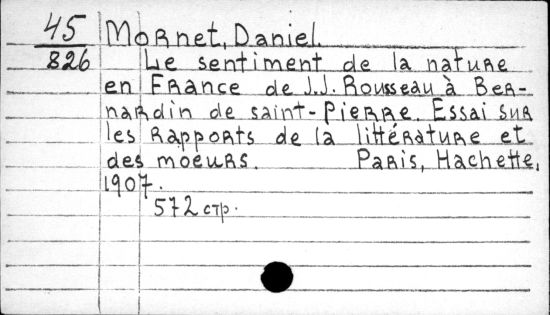 45 Mornet, Daniel.
826 Le sentiment de la nature
en France de J.J. Rousseau à Ber-
nardin de saint-Pierre. Essai sur
les rapports de la littérature et
des moeurs. Paris, Hachette,
1907.
572 стр.